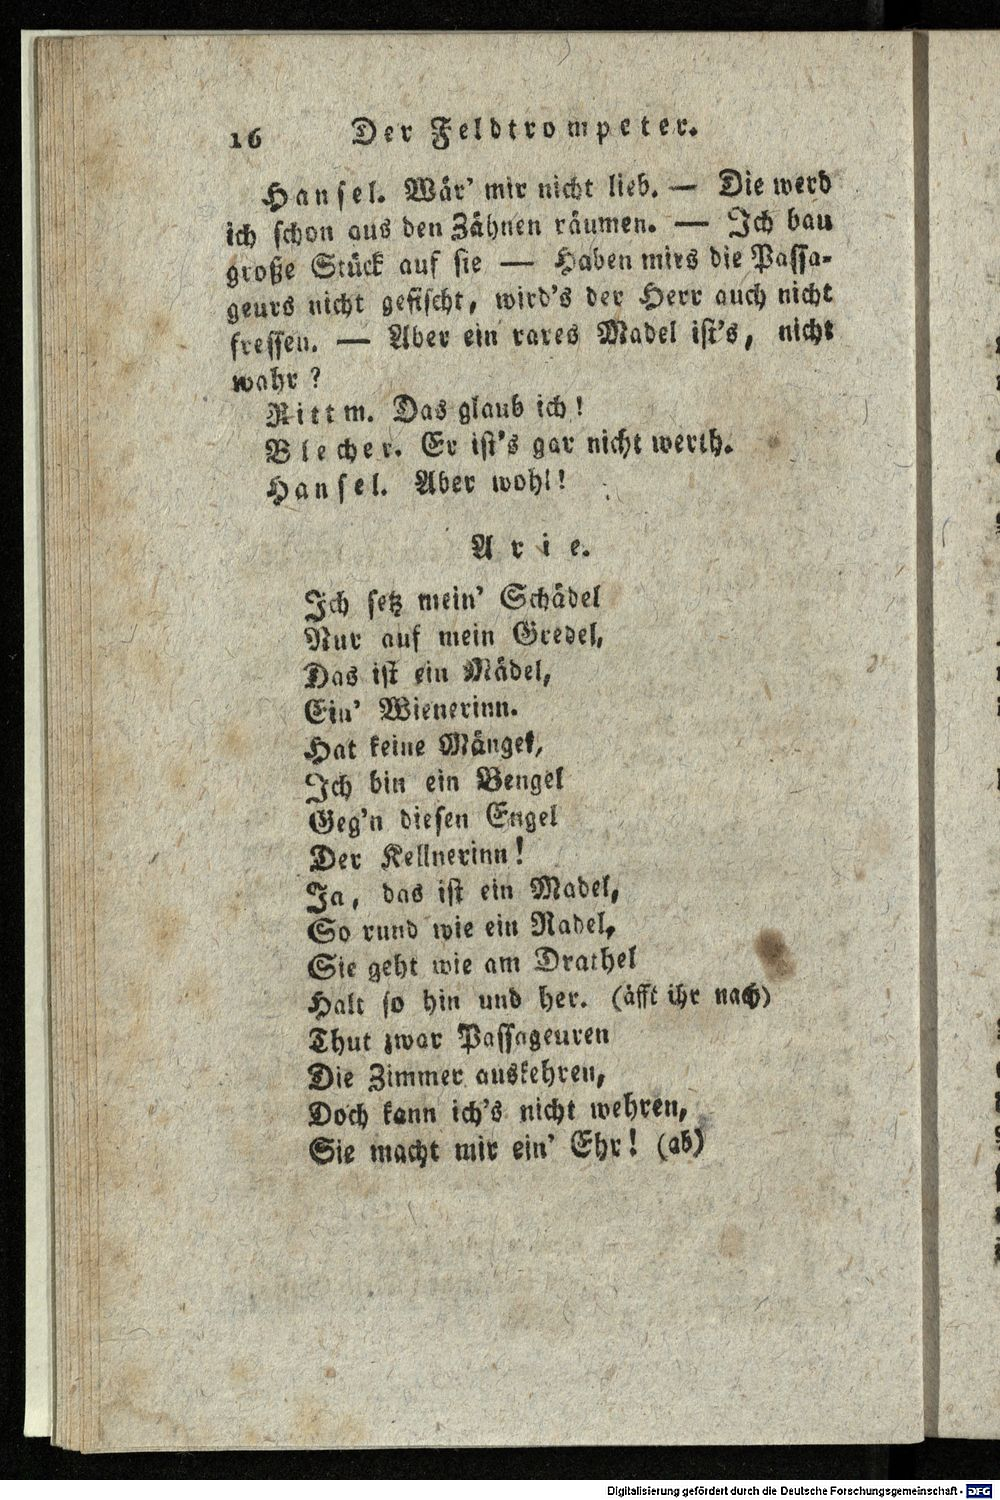 16 Der Feldtrompeter.
Hansel. Wär' mir nicht lieb. — Die werd
ich schon aus den Zähnen räumen. — Ich bau
große Stück auf sie — Haben mirs die Passa-
geurs nicht gefischt, wird's der Herr auch nicht
fressen. — Aber ein rares Madel ist's, nicht
wahr?
Rittm. Das glaub ich!
Blecher. Er ist's gar nicht werth.
Hansel. Aber wohl!
Arie.
Ich setz mein' Schädel
Nur auf mein Gredel,
Das ist ein Mädel,
Ein' Wienerinn.
Hat keine Mängel,
Ich bin ein Bengel
Geg'n diesen Engel
Der Kellnerinn!
Ja, das ist ein Madel,
So rund wie ein Radel,
Sie geht wie am Drathel
Halt so hin und her. (äfft ihr nach)
Thut zwar Passageuren
Die Zimmer auskehren,
Doch kann ich's nicht wehren,
Sie macht mir ein' Ehr! (ab)
Digitalisierung gefördert durch die Deutsche Forschungsgemeinschaft - DFG